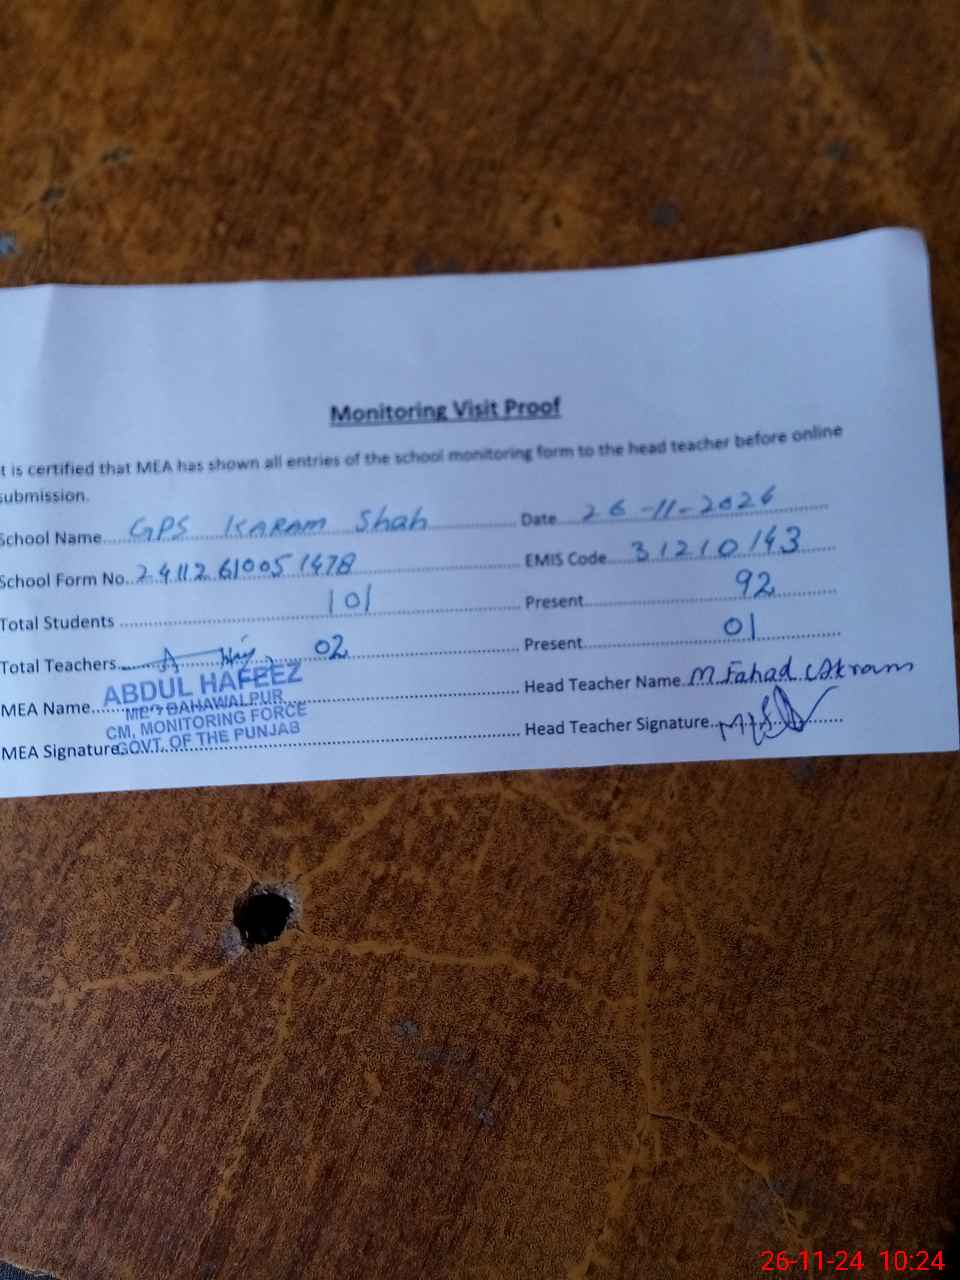 Monitoring Visit Proof
t is certified that MEA has shown all entries of the school monitoring form to the head teacher before online
submission.
School Name GPS KARAM Shah Date 26-11-2024
School Form No. 24112610051478 EMIS Code 31210143
Total Students 101 Present 92
Total Teachers 02 Present 01
MEA Name ABDUL HAFEEZ Head Teacher Name M Fahad Akram
BAHAWALPUR
CM, MONITORING FORCE
MEA Signature GOVT. OF THE PUNJAB Head Teacher Signature
26-11-24 10:24